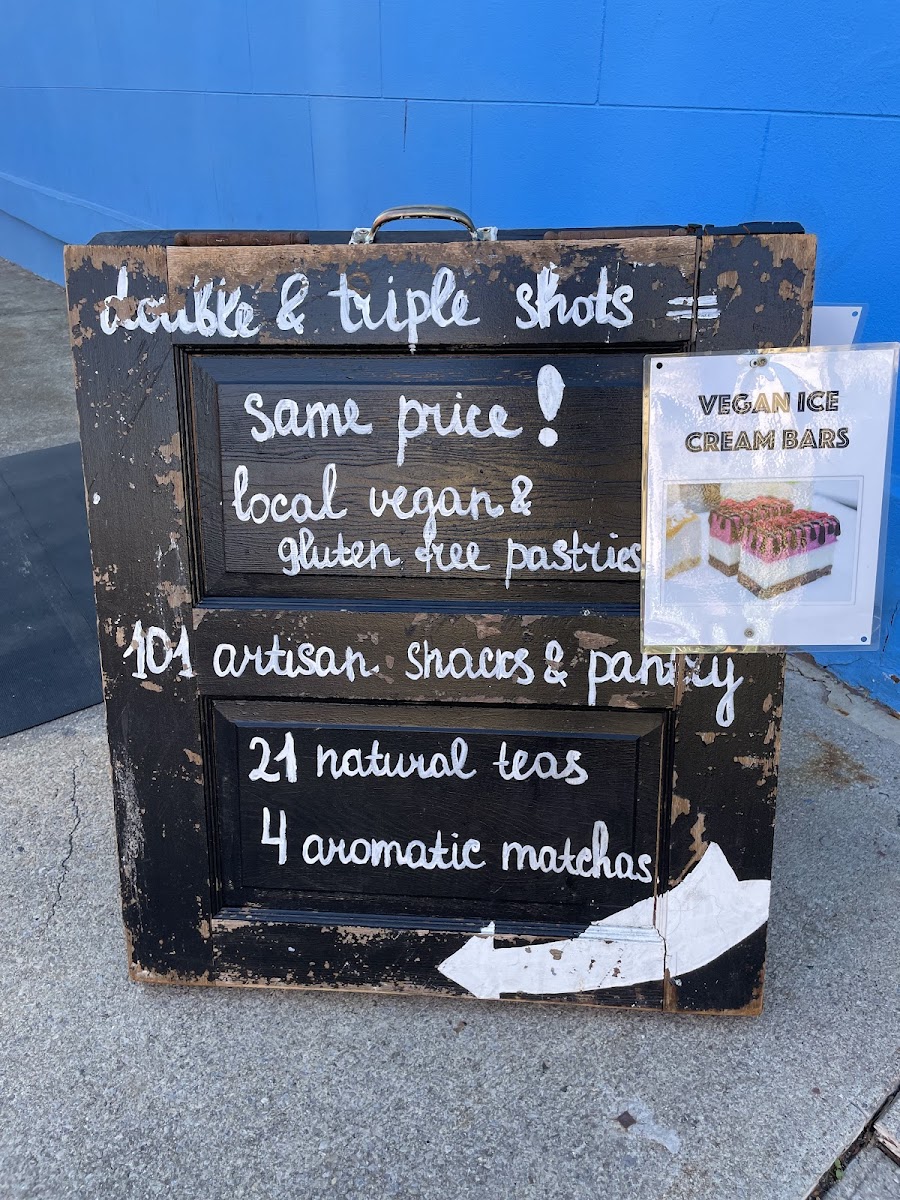 double & triple shots =
same price!
local vegan &
gluten free pastries
101 artisan snacks & pantry
21 natural teas
4 aromatic matchas
VEGAN ICE
CREAM BARS